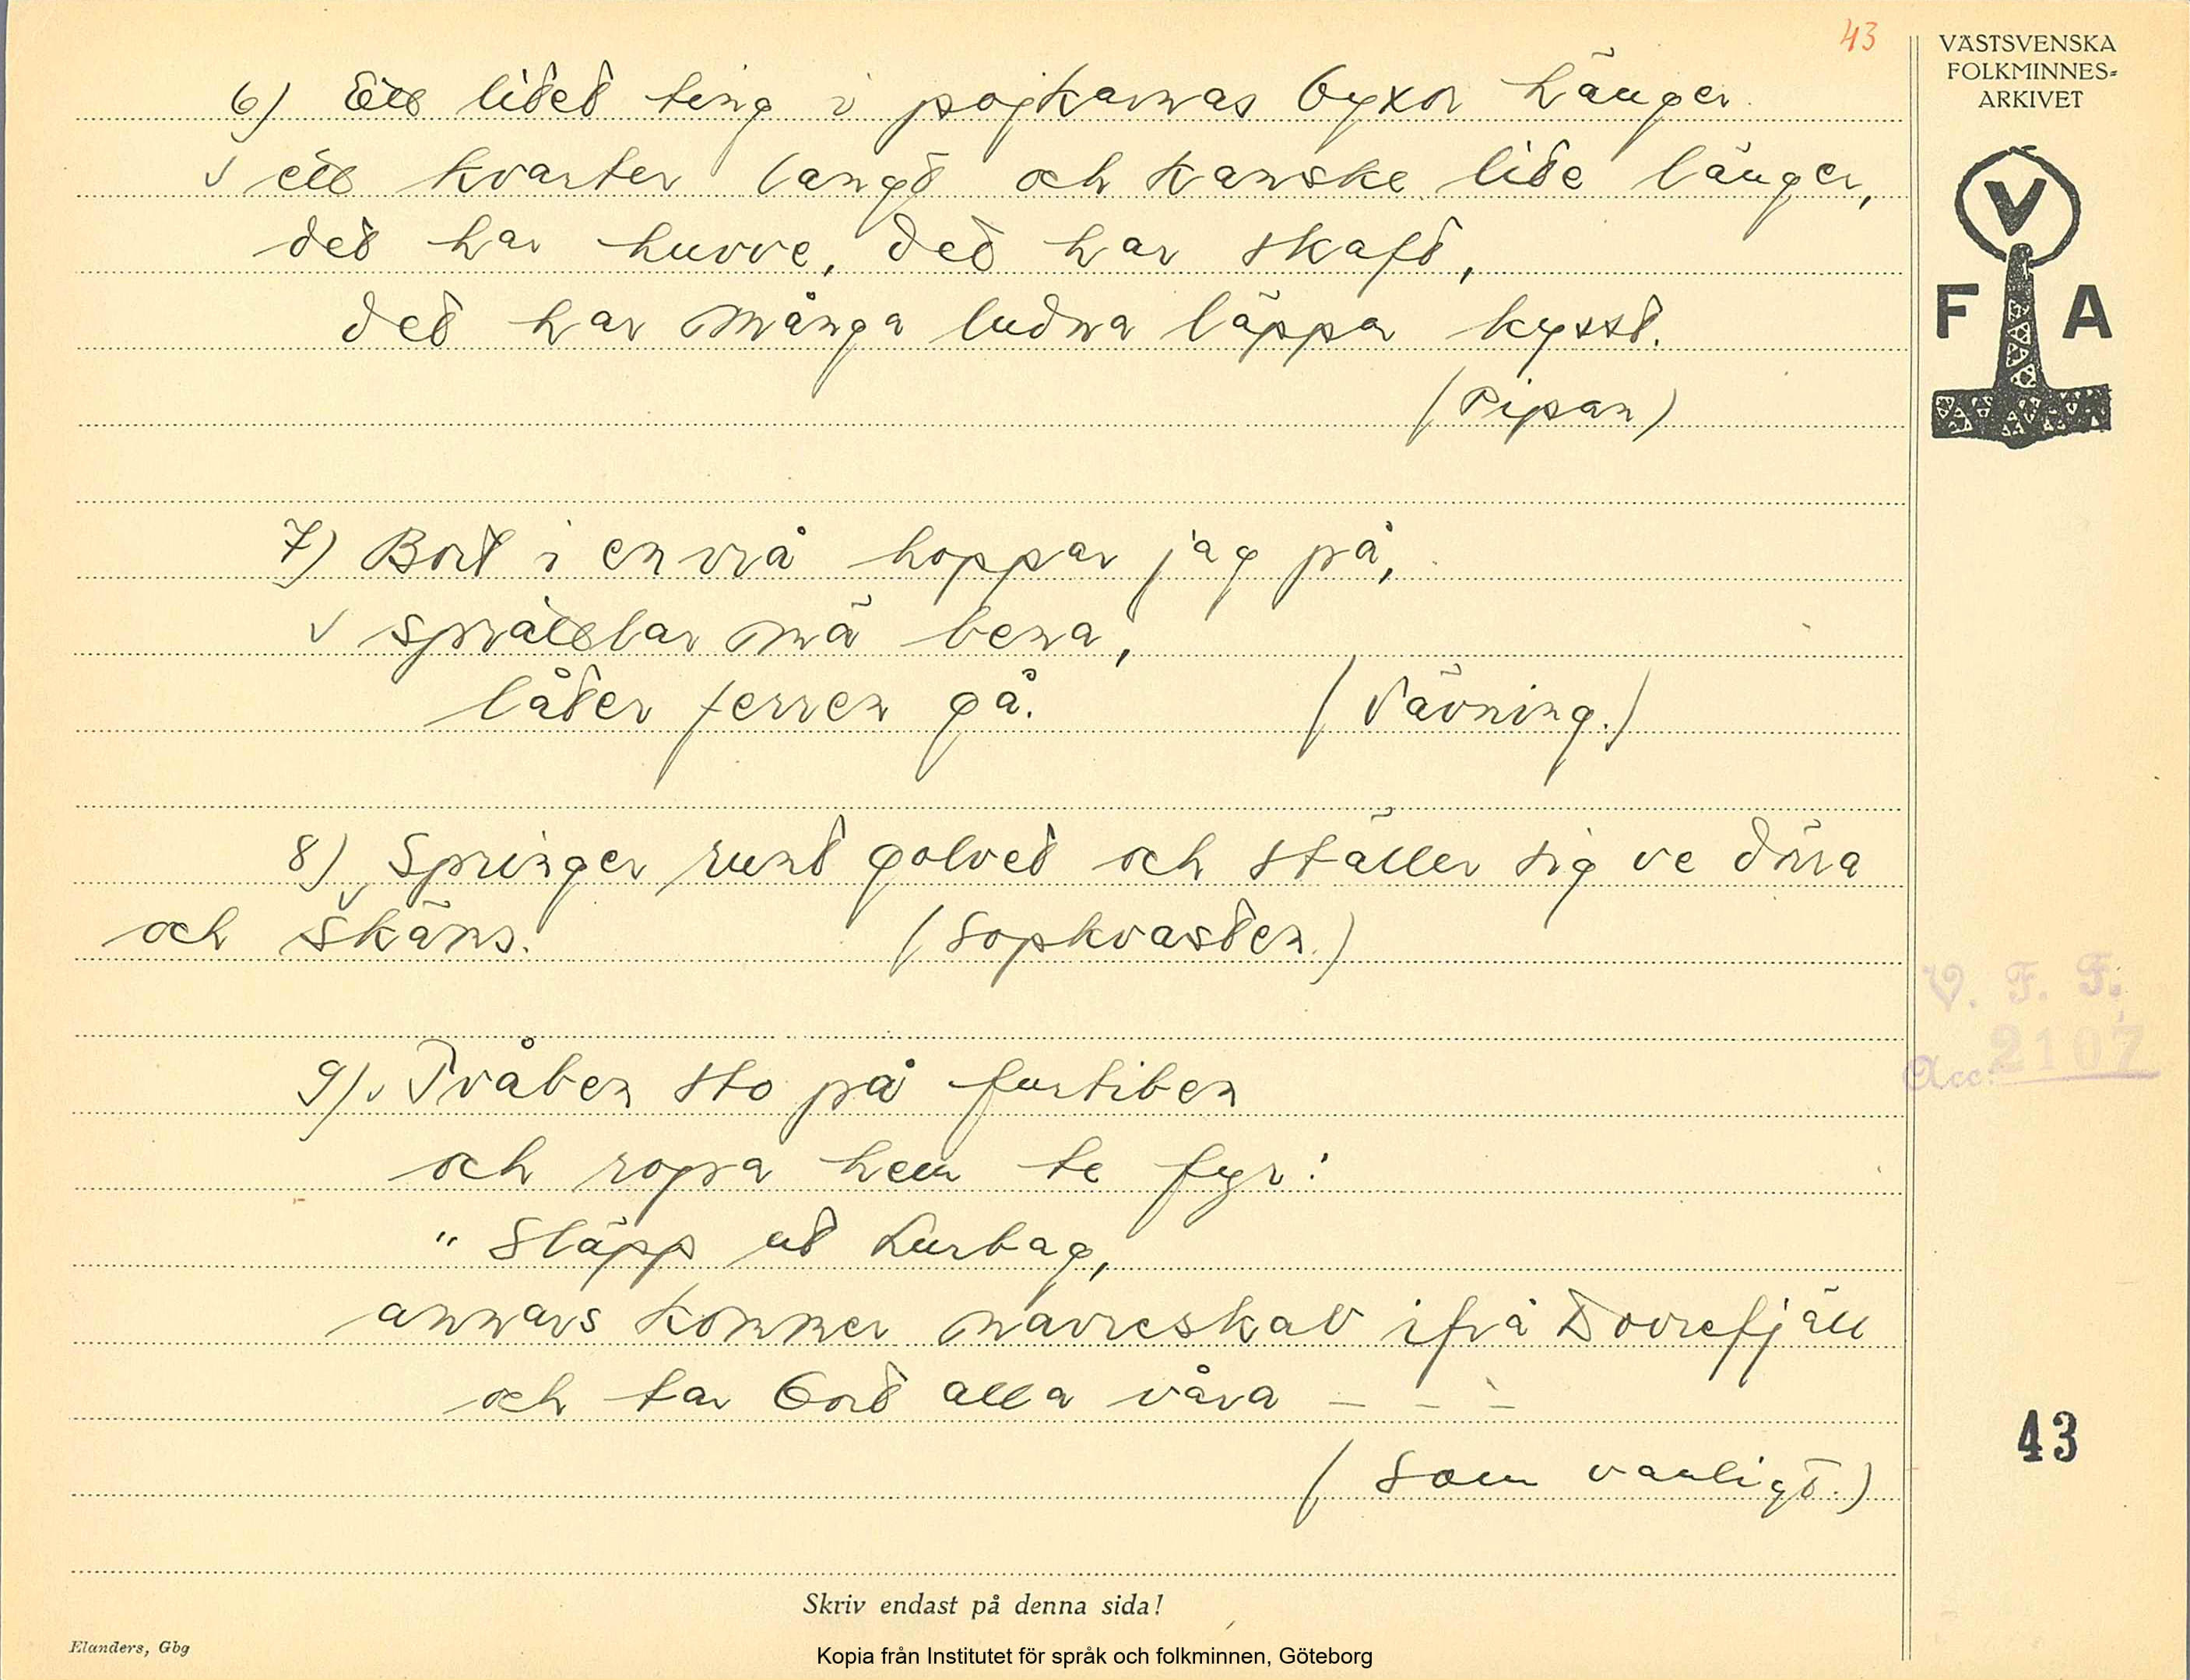 43
VÄSTSVENSKA
FOLKMINNES-
ARKIVET
V
F A
6) Ett litet ting i pojkarnas byxor hänger
✓ ett kvarter langt och kanske lite länger,
det har huvve, det har skaft,
det har många ludna läppar kysst.
(Pipan)
7) Bort i en vrå hoppar jag på,
✓ sprattlar mä bena,
låter ferren gå. (Vävning.)
8) ✓ Springer runt golvet och ställer sig ve dörra
och skäms. (Sopkvasten.)
9) ✓ Tvåben sto på furtiben
och ropa hem te fyr:
"Släpp ut Lurbag,
annars kommer navreskab ifrå Dovrefjäll
och tar bort alla våra – – –
(Som vanligt.)
V. F. F.
Acc. 2107
43
Skriv endast på denna sida!
Elanders, Gbg
Kopia från Institutet för språk och folkminnen, Göteborg